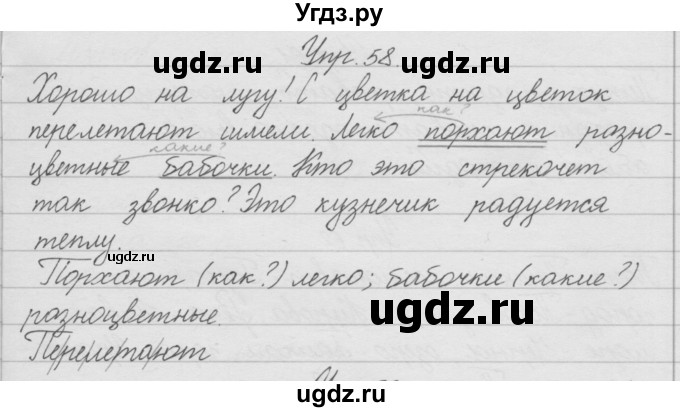 Угдз.ру
Упр. 58.
ugdz.ru
ugdz.ru
Хорошо на лугу! С цветка на цветок
как?
перелетают шмели. Легко порхают разно-
какие?
цветные бабочки. Кто это стрекочет
ugdz.ru
так звонко? Это кузнечик радуется
теплу.
ugdz.ru
Порхают (как?) легко; бабочки (какие?)
разноцветные.
ugdz.ru
Перелетают
ugdz.ru